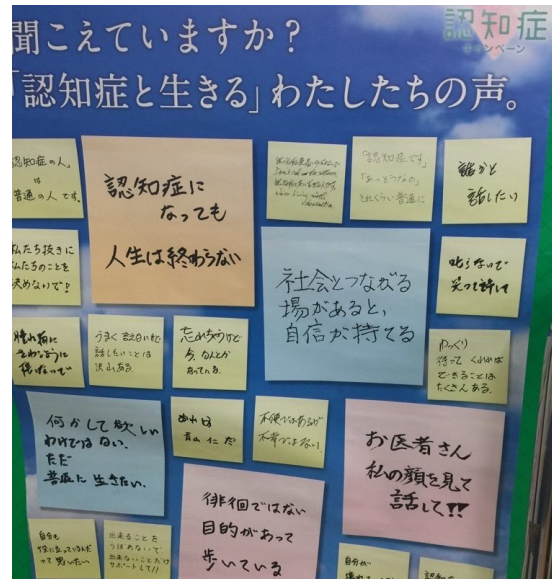 認知症
キャンペーン
聞こえていますか？
「認知症と生きる」わたしたちの声。
認知症の人」
は
普通の人です。
認知症に
なっても
人生は終わらない
「認知症です」
「あっそうなの」
それくらい普通に
誰かと
話したい
私たち抜きに
私たちのことを
決めないで！
社会とつながる
場があると、
自信が持てる
叱らないで
笑って許して
腫れ物に
さわるように
うまく言えないけど
話したいことは
沢山ある
忘れちゃうけど
今なんとか
なっている
ゆっくり
待ってくれれば
できることは
たくさんある
何かして欲しい
わけではない。
ただ
普通に生きたい。
不便ではあるが
不幸ではない
お医者さん
私の顔を見て
話して!!
徘徊ではない
目的があって
歩いている
自分も
役に立っているんだ
って思いたい
出来ることを
うばわないで
出来ないことだけ
サポートして!!
自分が